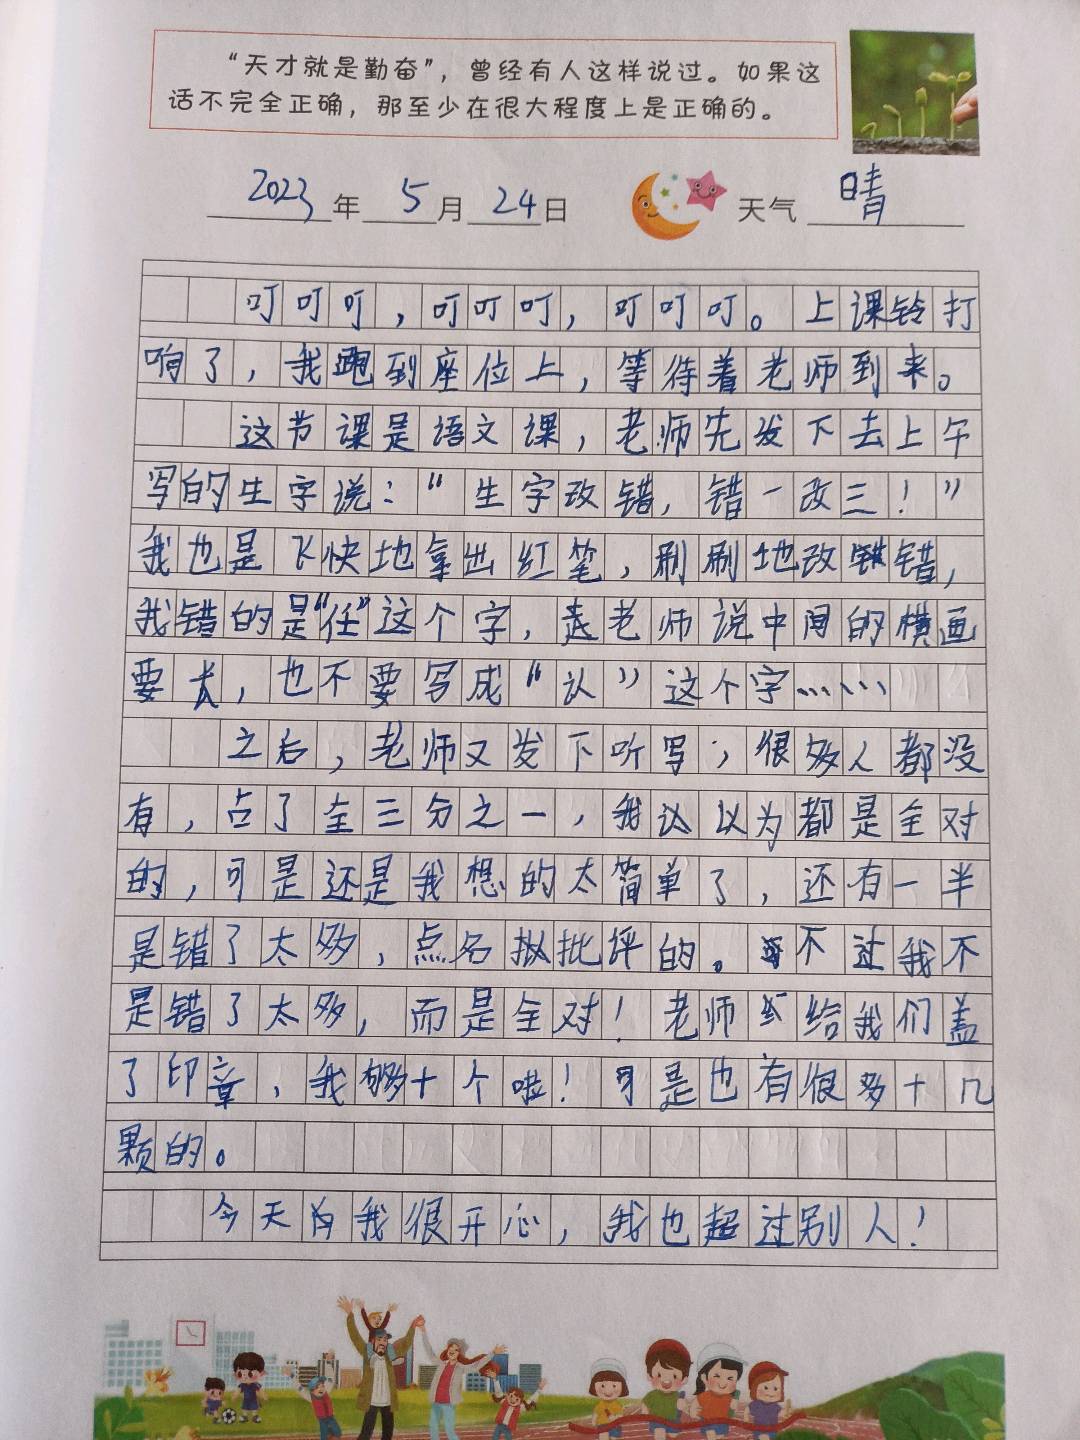 “天才就是勤奋”，曾经有人这样说过。如果这
话不完全正确，那至少在很大程度上是正确的。
2023年5月24日 天气 晴
叮叮叮，叮叮叮，叮叮叮。上课铃打
响了，我跑到座位上，等待着老师到来。
这节课是语文课，老师先发下去上午
写的生字说：“生字改错，错一改三！”
我也是飞快地拿出红笔，刷刷地改错，
我错的是“任”这个字，老师说中间的横画
要长，也不要写成“认”这个字……
之后，老师又发下听写，很多人都没
有，占了全三分之一，我以为都是全对
的，可是还是我想的太简单了，还有一半
是错了太多，点名批评的。不过我不
是错了太多，而是全对！老师给我们盖
了印章，我够十个啦！可是也有很多十几
颗的。
今天我很开心，我也超过别人！